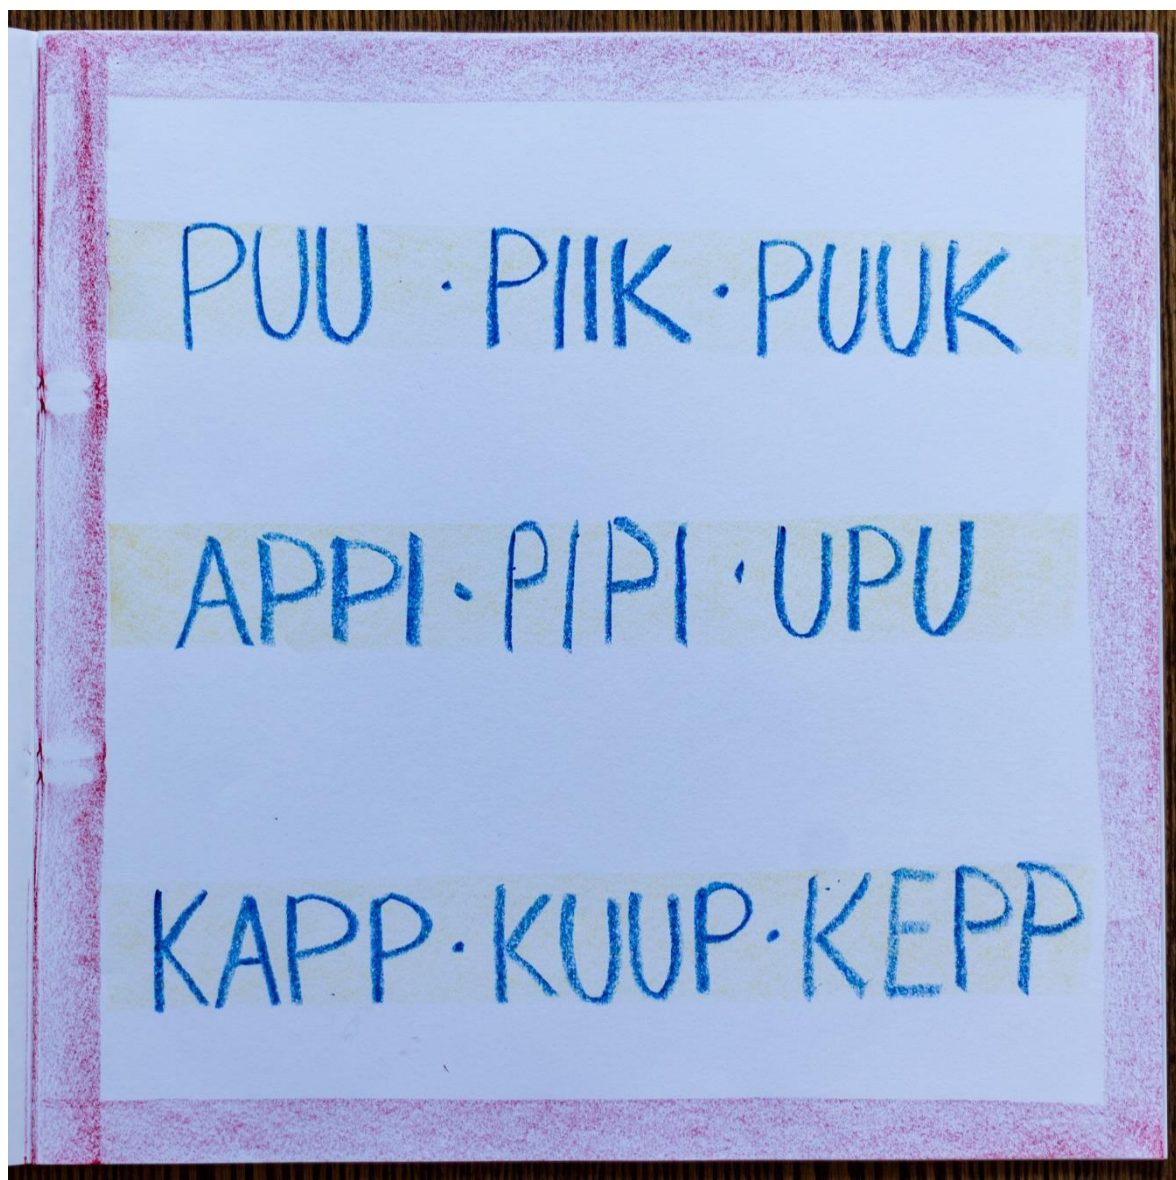 PUU · PIIK · PUUK
APPI · PIPI · UPU
KAPP · KUUP · KEPP